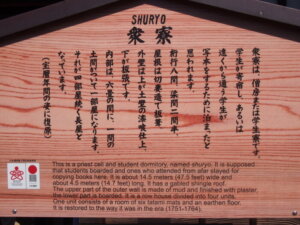 SHURYO
衆寮
衆寮は、僧房または学生寮です。
学生が寄宿し、あるいは
遠くから通う学生が、
写本をするために泊まったと
思われます。
桁行八間、梁間二間半、
屋根は切妻造で板葺、
外壁は上が土壁の漆喰仕上、
下が板張です。
内部は、六畳の間に、一間の
土間がついて一部屋になります。
それが四部屋続く長屋と
なっています。
(宝暦年間の姿に復原)
This is a priest cell and student dormitory, named shuryo. It is supposed
that students boarded and ones who attended from afar stayed for
copying books here. It is about 14.5 meters (47.5 feet) wide and
about 4.5 meters (14.7 feet) long. It has a gabled shingle roof.
The upper part of the outer wall is made of mud and finished with plaster,
the lower part is boarded. It is a row house divided into four units.
One unit consists of a room of six tatami mats and an earthen floor.
It is restored to the way it was in the era (1751-1764).